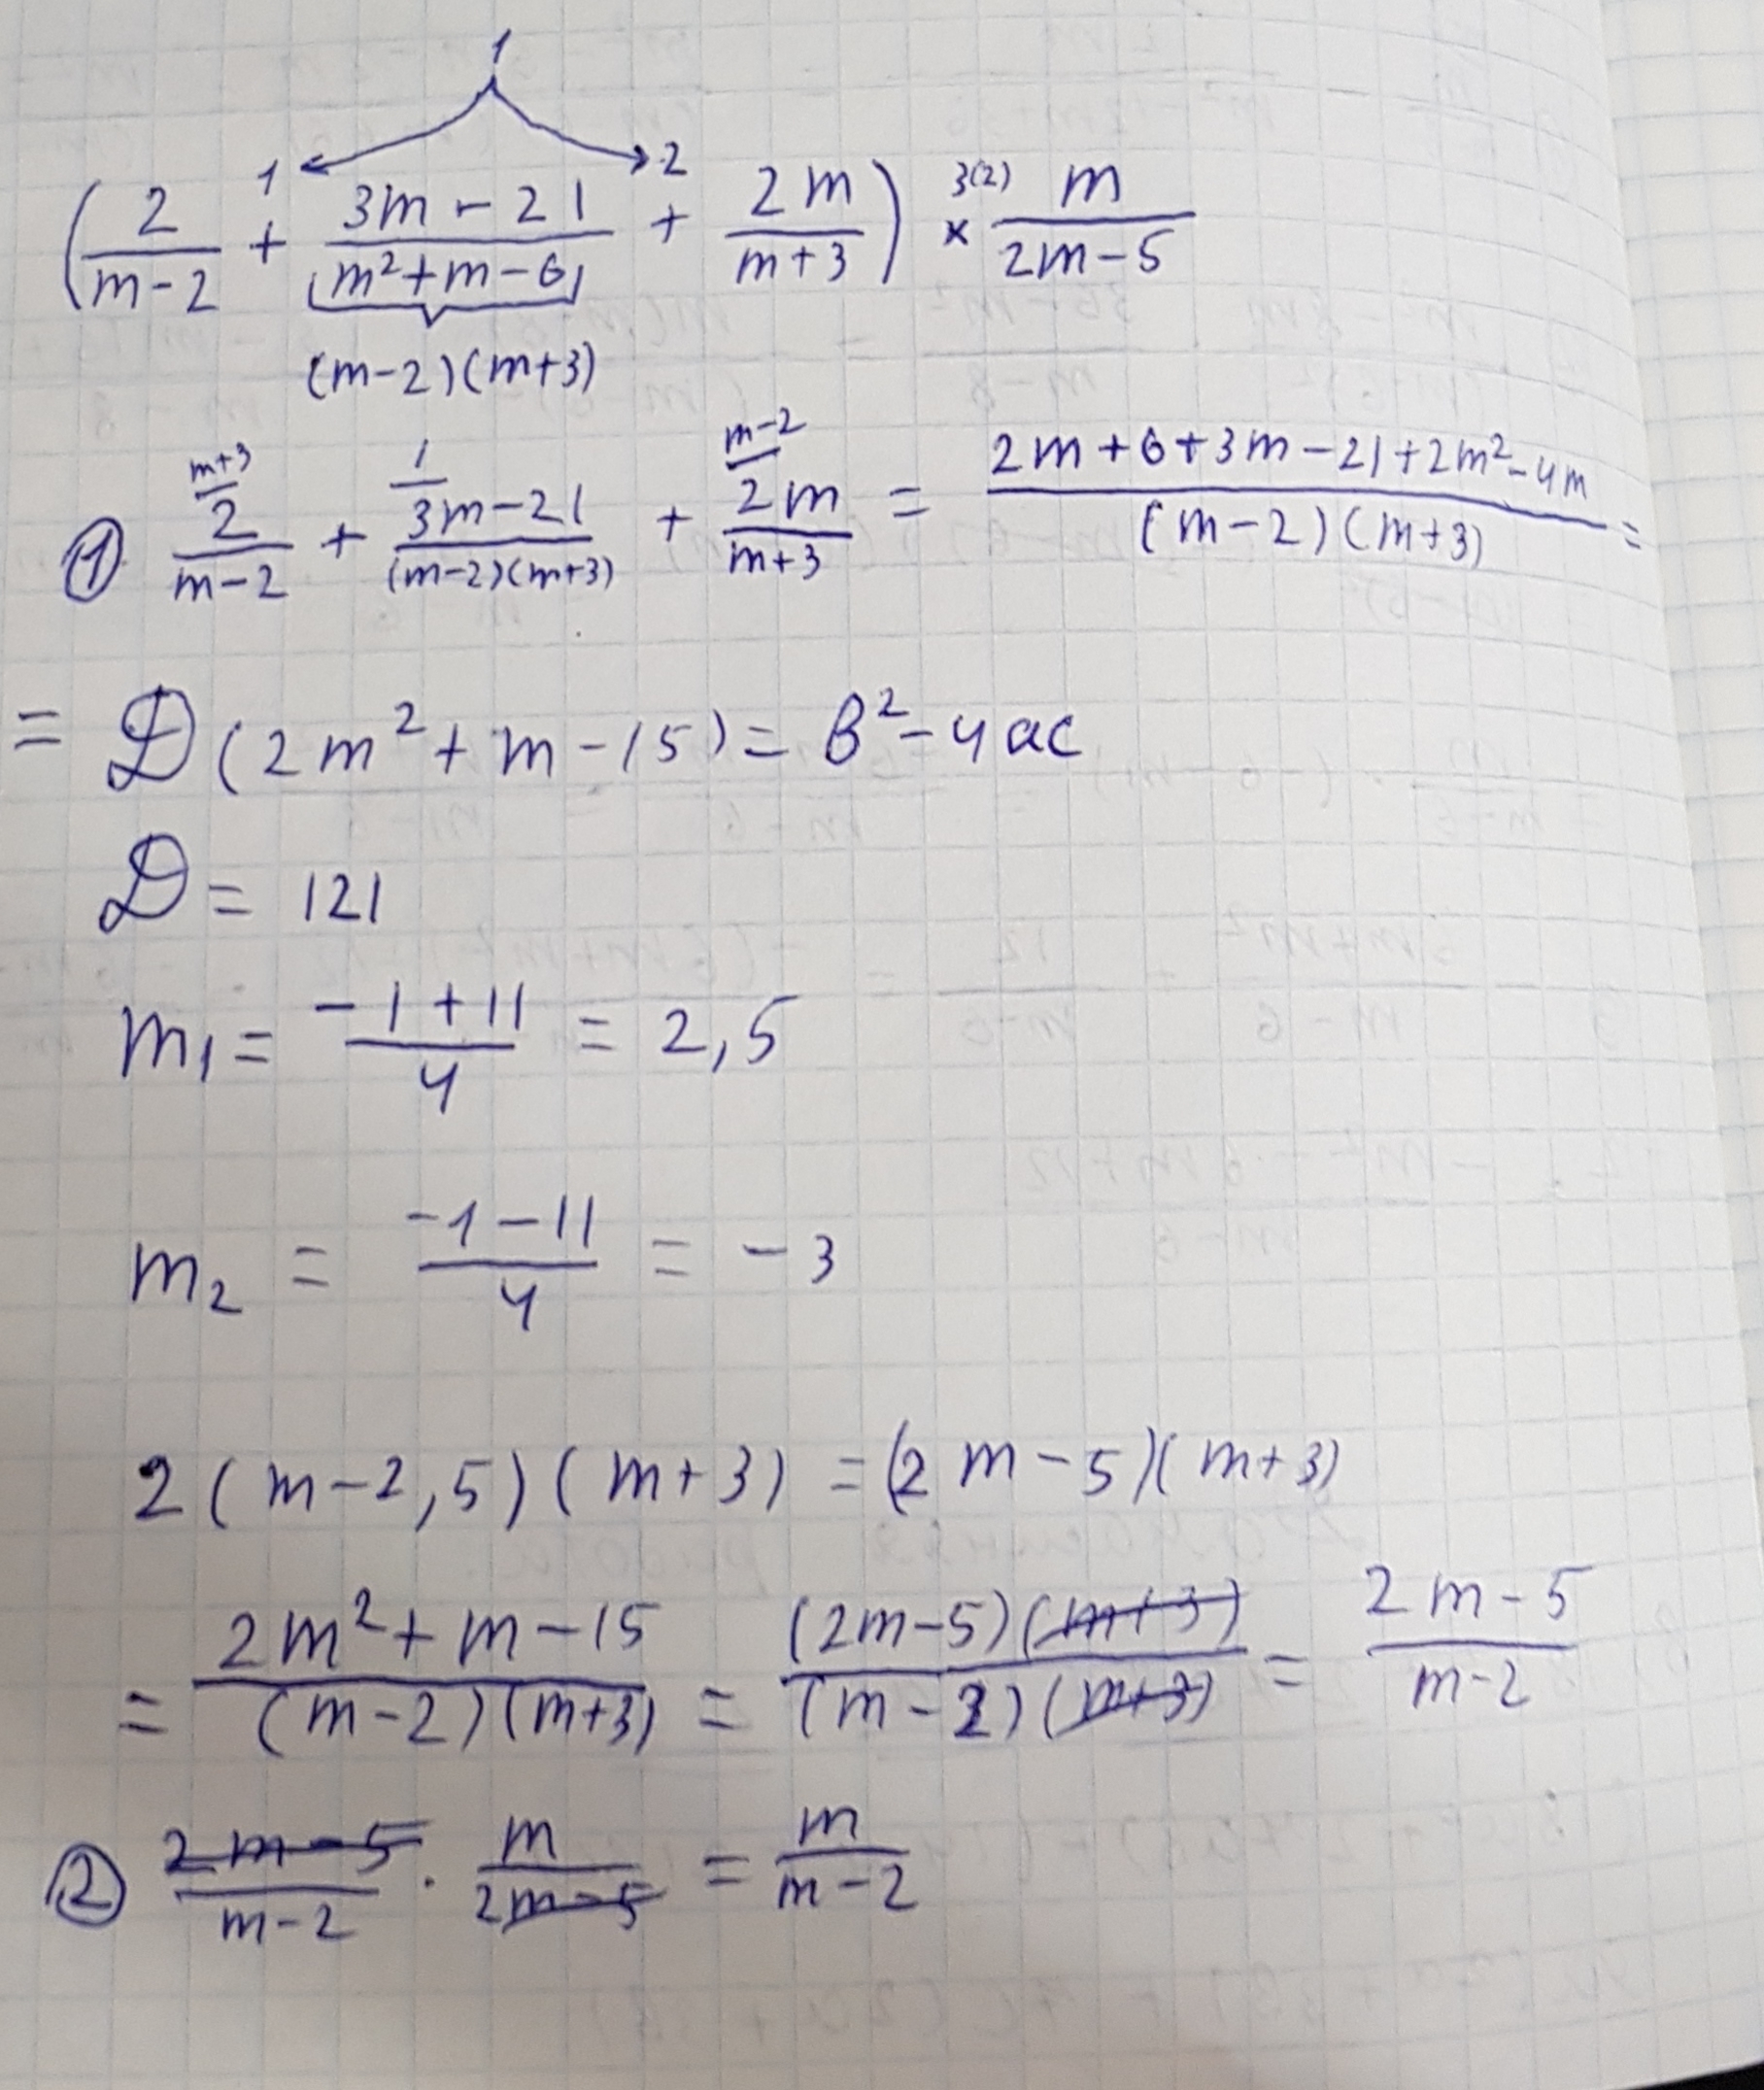 1
( 2/(m-2) + (3m-21)/(m²+m-6) + 2m/(m+3) ) × m/(2m-5)
1 2 3(2)
(m-2)(m+3)
m+3 1 m-2
① 2/(m-2) + (3m-21)/((m-2)(m+3)) + 2m/(m+3) = (2m+6+3m-21+2m²-4m)/((m-2)(m+3)) =
= D(2m²+m-15) = в²-4ac
D = 121
m₁ = (-1+11)/4 = 2,5
m₂ = (-1-11)/4 = -3
2(m-2,5)(m+3) = (2m-5)(m+3)
= (2m²+m-15)/((m-2)(m+3)) = ((2m-5)(m+3))/((m-2)(m+3)) = (2m-5)/(m-2)
② (2m-5)/(m-2) · m/(2m-5) = m/(m-2)